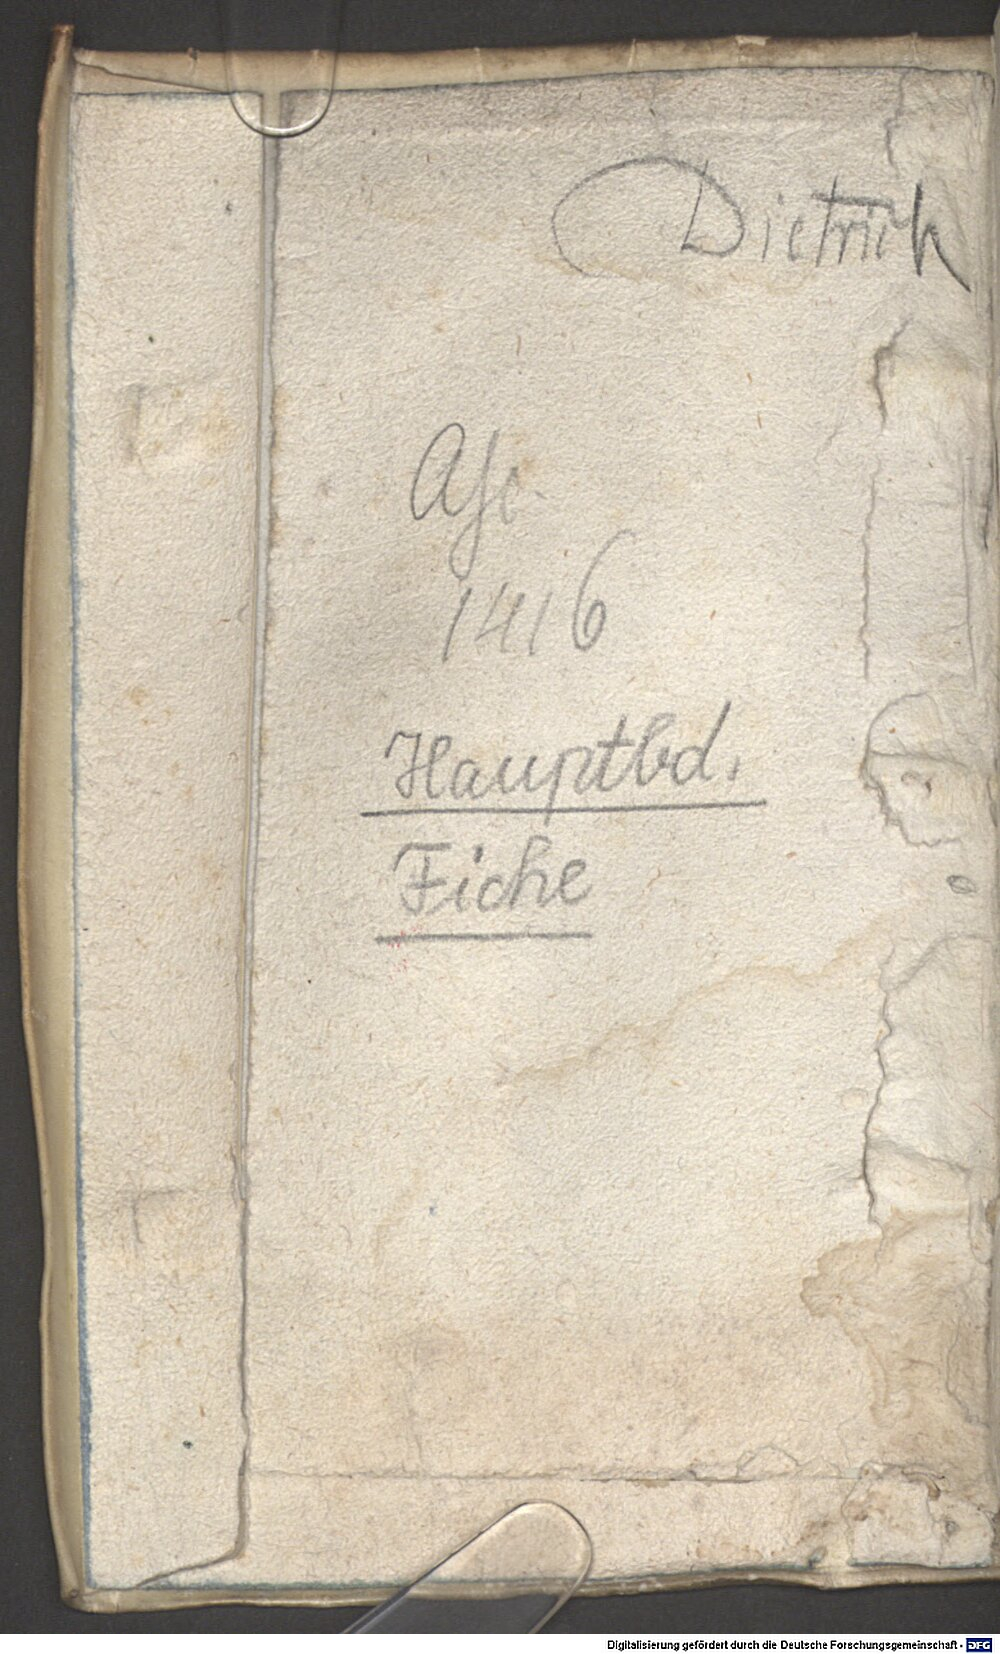 Dietrich
Asc.
1416
Hauptbd.
Fiche
Digitalisierung gefördert durch die Deutsche Forschungsgemeinschaft - DFG